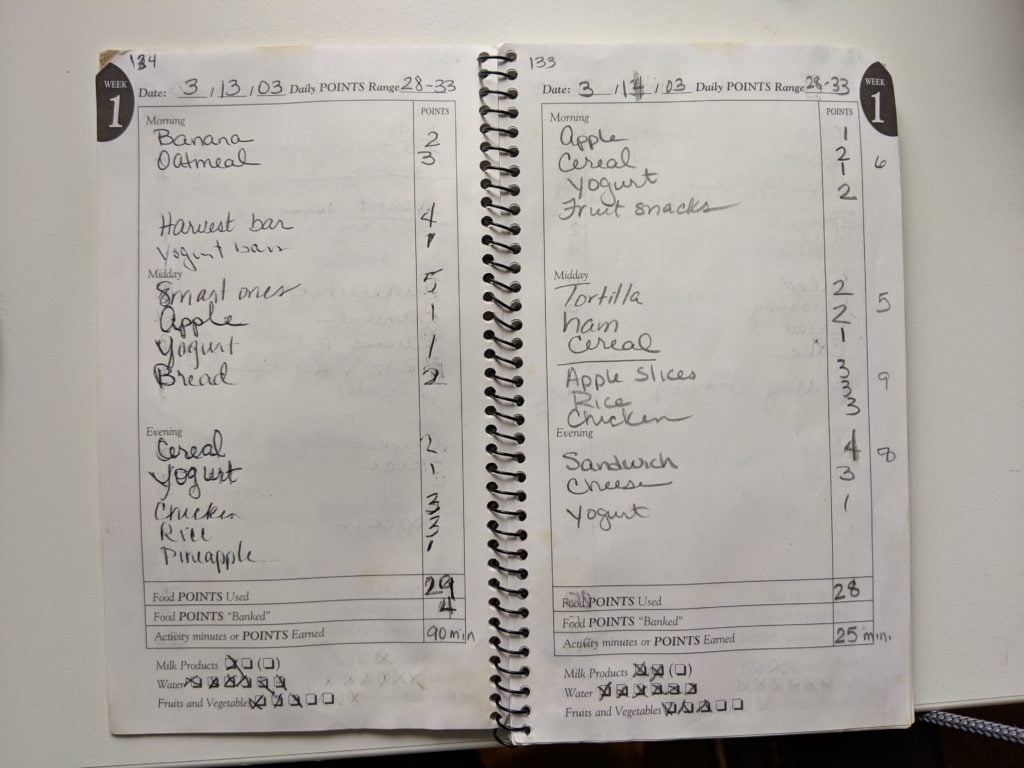 134
WEEK 1
Date: 3, 13, 03 Daily POINTS Range 28-33
POINTS
Morning
Banana 2
Oatmeal 3
Harvest bar 4
Yogurt bar 1
Midday
Smart ones 5
Apple 1
Yogurt 1
Bread 2
Evening
Cereal 2
Yogurt 1
Chicken 3
Rice 3
Pineapple 1
Food POINTS Used 29
Food POINTS “Banked” 4
Activity minutes or POINTS Earned 90 min
Milk Products
Water
Fruits and Vegetables
133
WEEK 1
Date: 3, 14, 03 Daily POINTS Range 28-33
POINTS
Morning
Apple 1
Cereal 2 6
Yogurt 1
Fruit snacks 2
Midday
Tortilla 2 5
ham 2
Cereal 1
Apple Slices 3 9
Rice 3
Chicken 3
Evening
Sandwich 4 8
Cheese 3
Yogurt 1
Food POINTS Used 28
Food POINTS “Banked”
Activity minutes or POINTS Earned 25 min.
Milk Products
Water
Fruits and Vegetables